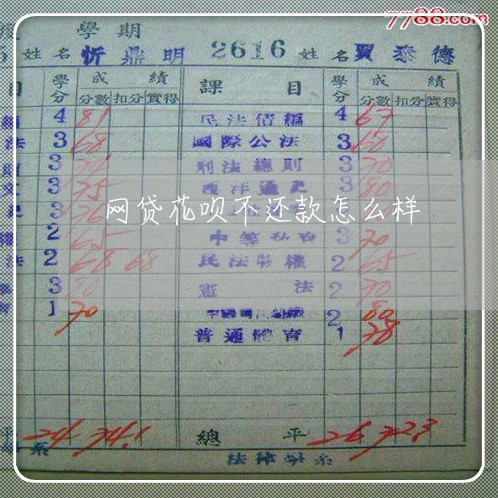 7788.com
學期
姓名 忻鼎明 2616 姓名 賈泰德
目 學分 成績 課目 學分 成績
分數 扣分 實得 分數 扣分 實得
4 81 民法債編 4 67
法 3 68 國際公法 3 60
3 刑法總則 3 70
3 75 西洋通史 3 80
3 76
網贷花呗不还款怎么样
2 65 3 70
法 2 68 68 民法物權 2 65
3 80 憲法 2 70
1 70 2 80
普通體育 1 78
平 24 74.1 總平 26 72.3
系 法律學系